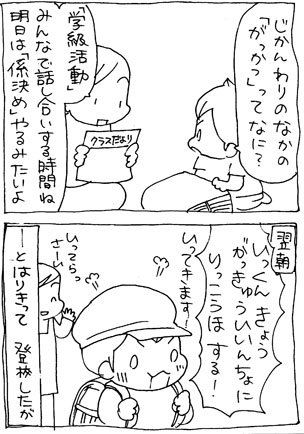 じかんわりのなかの
「がっかつ」ってなに？
「学級活動」
みんなで話し合いする時間ね
明日は「係決め」やるみたいよ
クラスだより
翌朝
いっくん きょう
がっきゅういいんちょに
りっこうほする！
いってきます！
いってらっ
さーい
ーとはりきって 登校したが